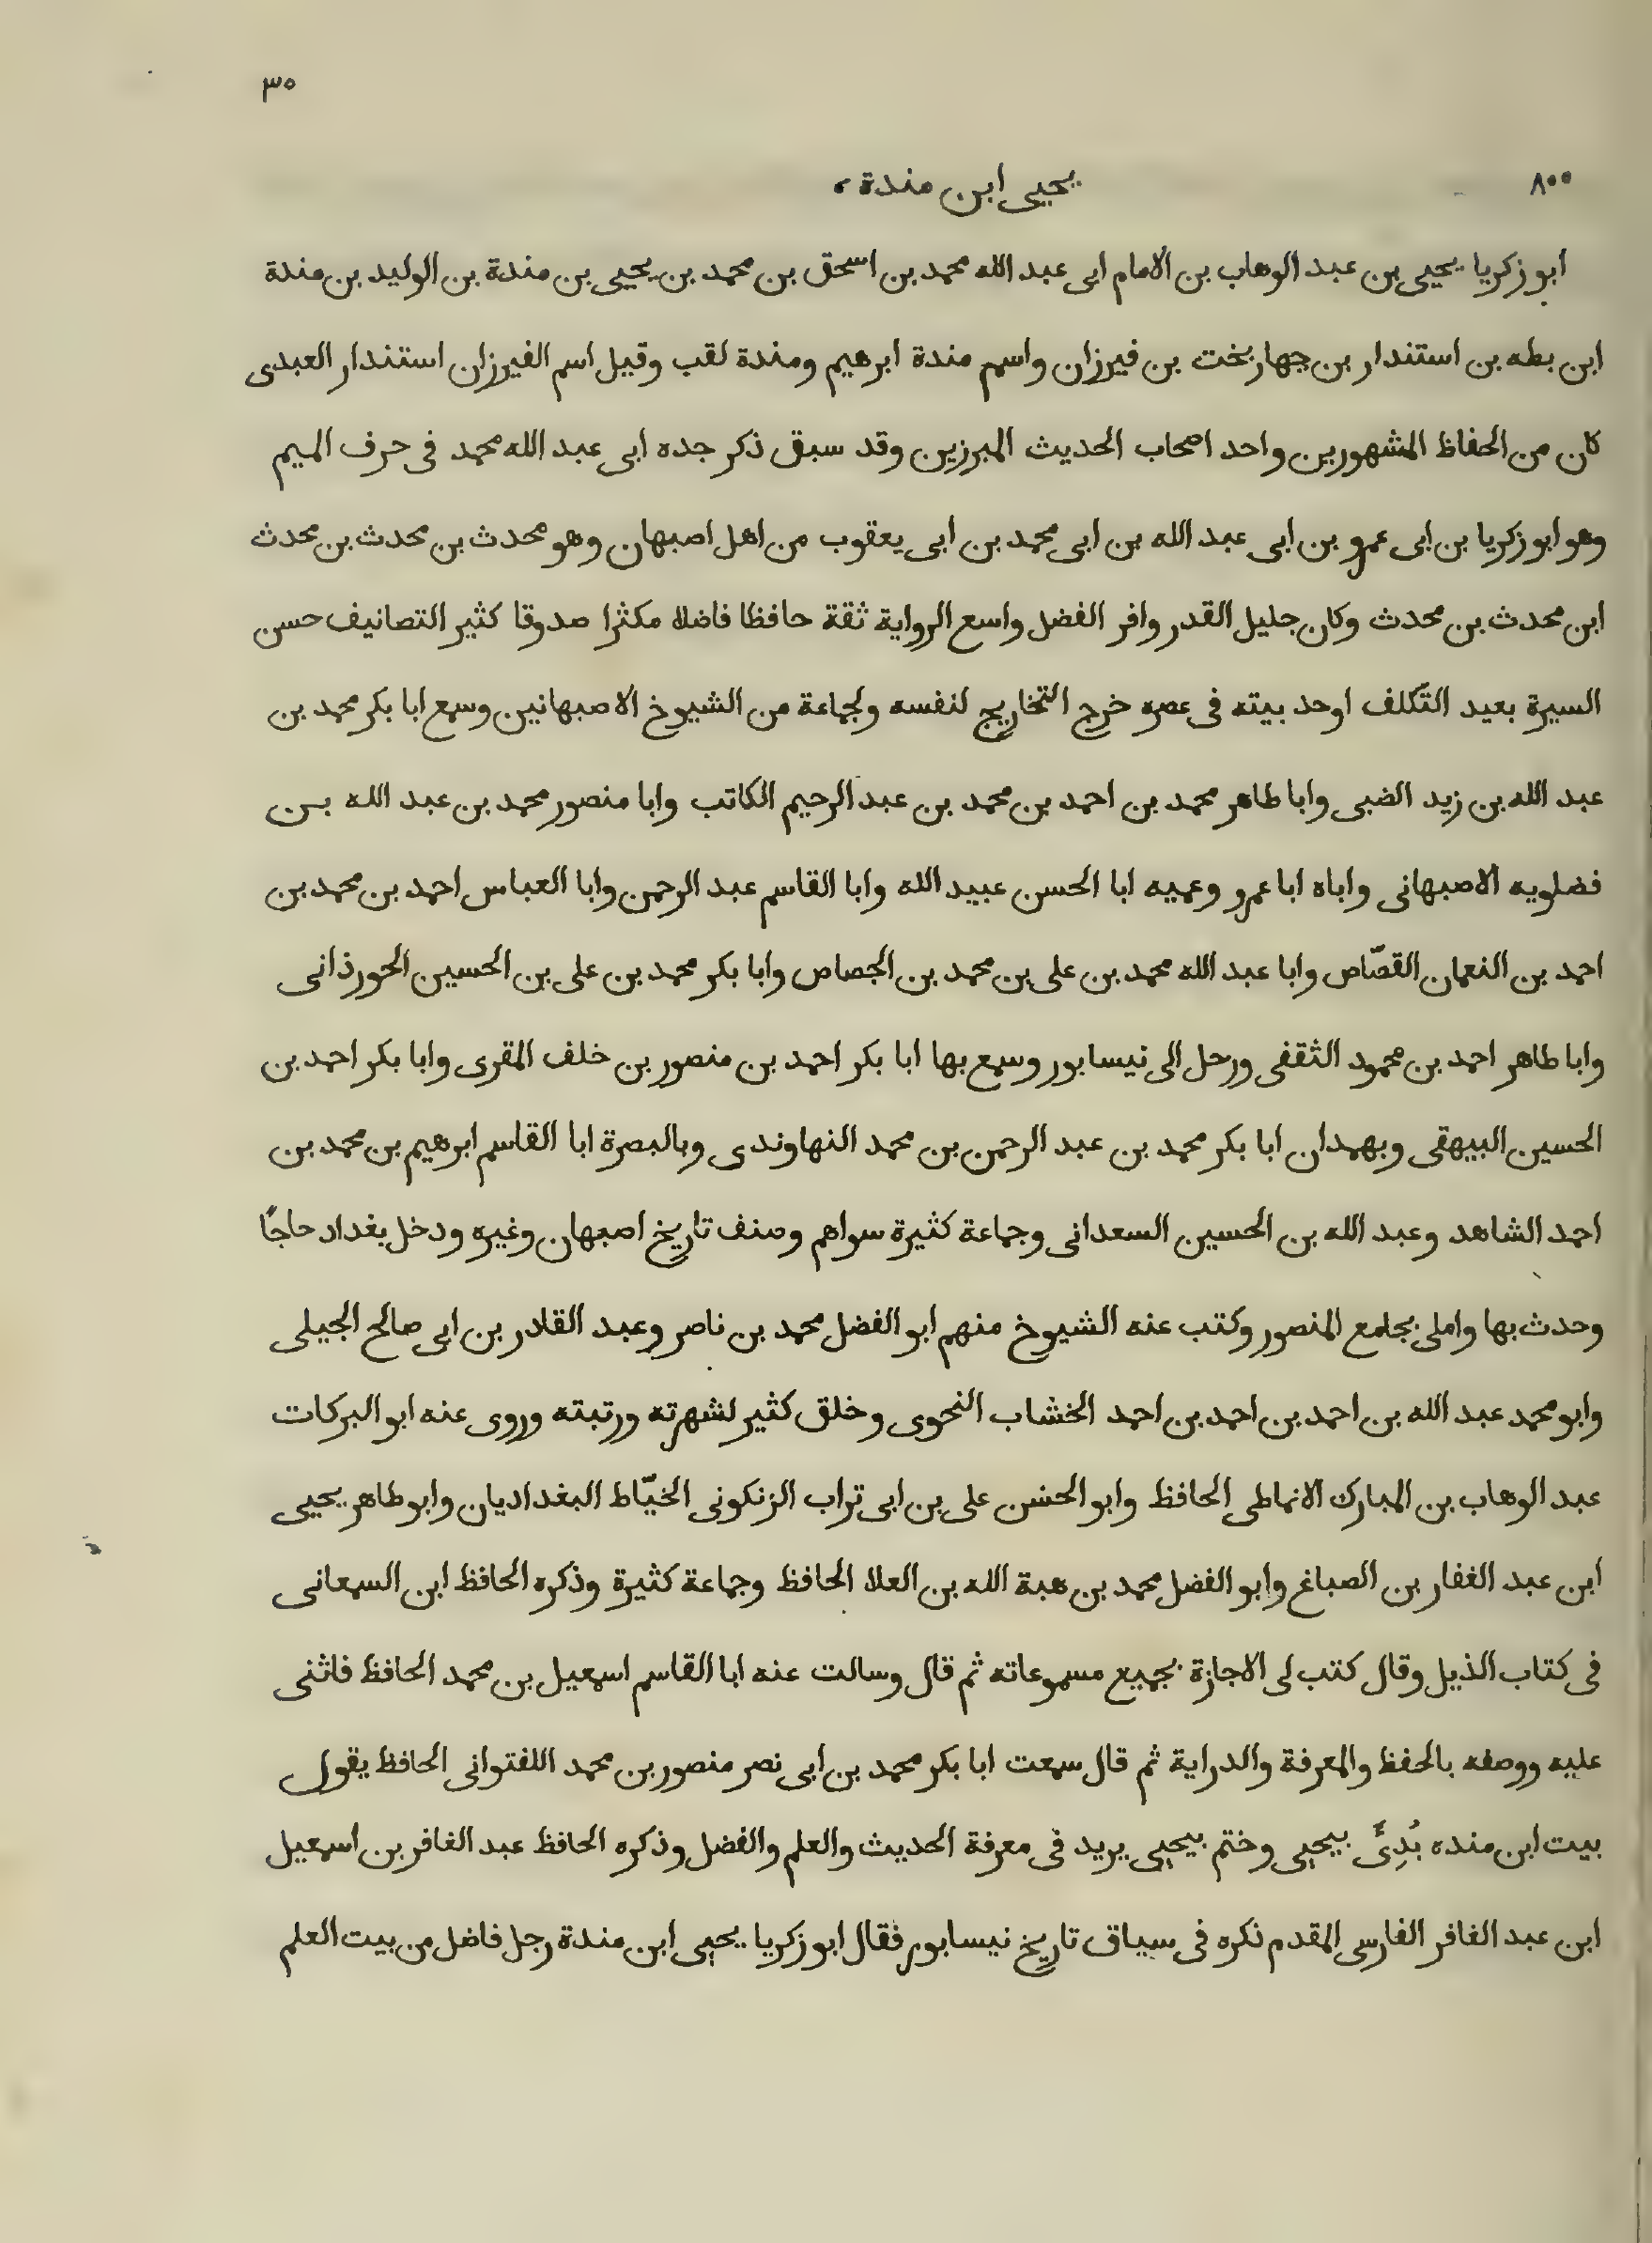 ٣٥
٨٠٠ يحيى ابن مندة،
ابو زكريا يحيى بن عبد الوهاب بن الامام ابى عبد الله محمد بن اسحق بن محمد بن يحيى بن مندة بن الوليد بن مندة
ابن بطه بن استندار بن جهاربخت بن فيرزان واسم مندة ابرهيم ومندة لقب وقيل اسم الفيرزان استندار العبدى
كان من الحفاظ المشهورين واحد اصحاب الحديث المبرزين وقد سبق ذكر جده ابى عبد الله محمد فى حرف الميم
وهو ابو زكريا بن ابى عمرو بن ابى عبد الله بن ابى محمد بن ابى يعقوب من اهل اصبهان وهو محدث بن محدث بن محدث
ابن محدث بن محدث وكان جليل القدر وافر الفضل واسع الرواية ثقة حافظا فاضلا مكثرا صدوقا كثير التصانيف حسن
السيرة بعيد التكلف اوحد بيته فى عصره خرج التخاريج لنفسه ولجماعة من الشيوخ الاصبهانيين وسمع ابا بكر محمد بن
عبد الله بن زيد الضبى وابا طاهر محمد بن احمد بن محمد بن عبد الرحيم الكاتب وابا منصور محمد بن عبد الله بن
فضلويه الاصبهانى واباه ابا عمرو وعميه ابا الحسن عبيد الله وابا القاسم عبد الرحمن وابا العباس احمد بن محمد بن
احمد بن النعمان القصّاص وابا عبد الله محمد بن على بن محمد بن الجصاص وابا بكر محمد بن على بن الحسين الحورذانى
وابا طاهر احمد بن محمود الثقفى ورحل الى نيسابور وسمع بها ابا بكر احمد بن منصور بن خلف المقرى وابا بكر احمد بن
الحسين البيهقى وبهمدان ابا بكر محمد بن عبد الرحمن بن محمد النهاوندى وبالبصرة ابا القاسم ابرهيم بن محمد بن
احمد الشاهد وعبد الله بن الحسين السعدانى وجماعة كثيرة سواهم وصنف تاريخ اصبهان وغيره ودخل بغداد حاجًا
وحدث بها واملى بجامع المنصور وكتب عنه الشيوخ منهم ابو الفضل محمد بن ناصر وعبد القادر بن ابى صالح الجيلى
وابو محمد عبد الله بن احمد بن احمد بن احمد الخشاب النحوى وخلق كثير لشهرته ورتبته وروى عنه ابو البركات
عبد الوهاب بن المبارك الانماطى الحافظ وابو الحسن على بن ابى تراب الزنكونى الخيّاط البغداديان وابو طاهر يحيى
ابن عبد الغفار بن الصباغ وابو الفضل محمد بن هبة الله بن العلا الحافظ وجماعة كثيرة وذكره الحافظ ابن السمعانى
فى كتاب الذيل وقال كتب لى الاجازة بجميع مسموعاته ثم قال وسالت عنه ابا القاسم اسمعيل بن محمد الحافظ فاثنى
عليه ووصفه بالحفظ والمعرفة والدراية ثم قال سمعت ابا بكر محمد بن ابى نصر منصور بن محمد اللفتوانى الحافظ يقول
بيت ابن منده بُدِئَ بيحيى وختم بيحيى يريد فى معرفة الحديث والعلم والفضل وذكره الحافظ عبد الغافر بن اسمعيل
ابن عبد الغافر الفارسى المقدم ذكره فى سياق تاريخ نيسابور فقال ابو زكريا يحيى ابن مندة رجل فاضل من بيت العلم